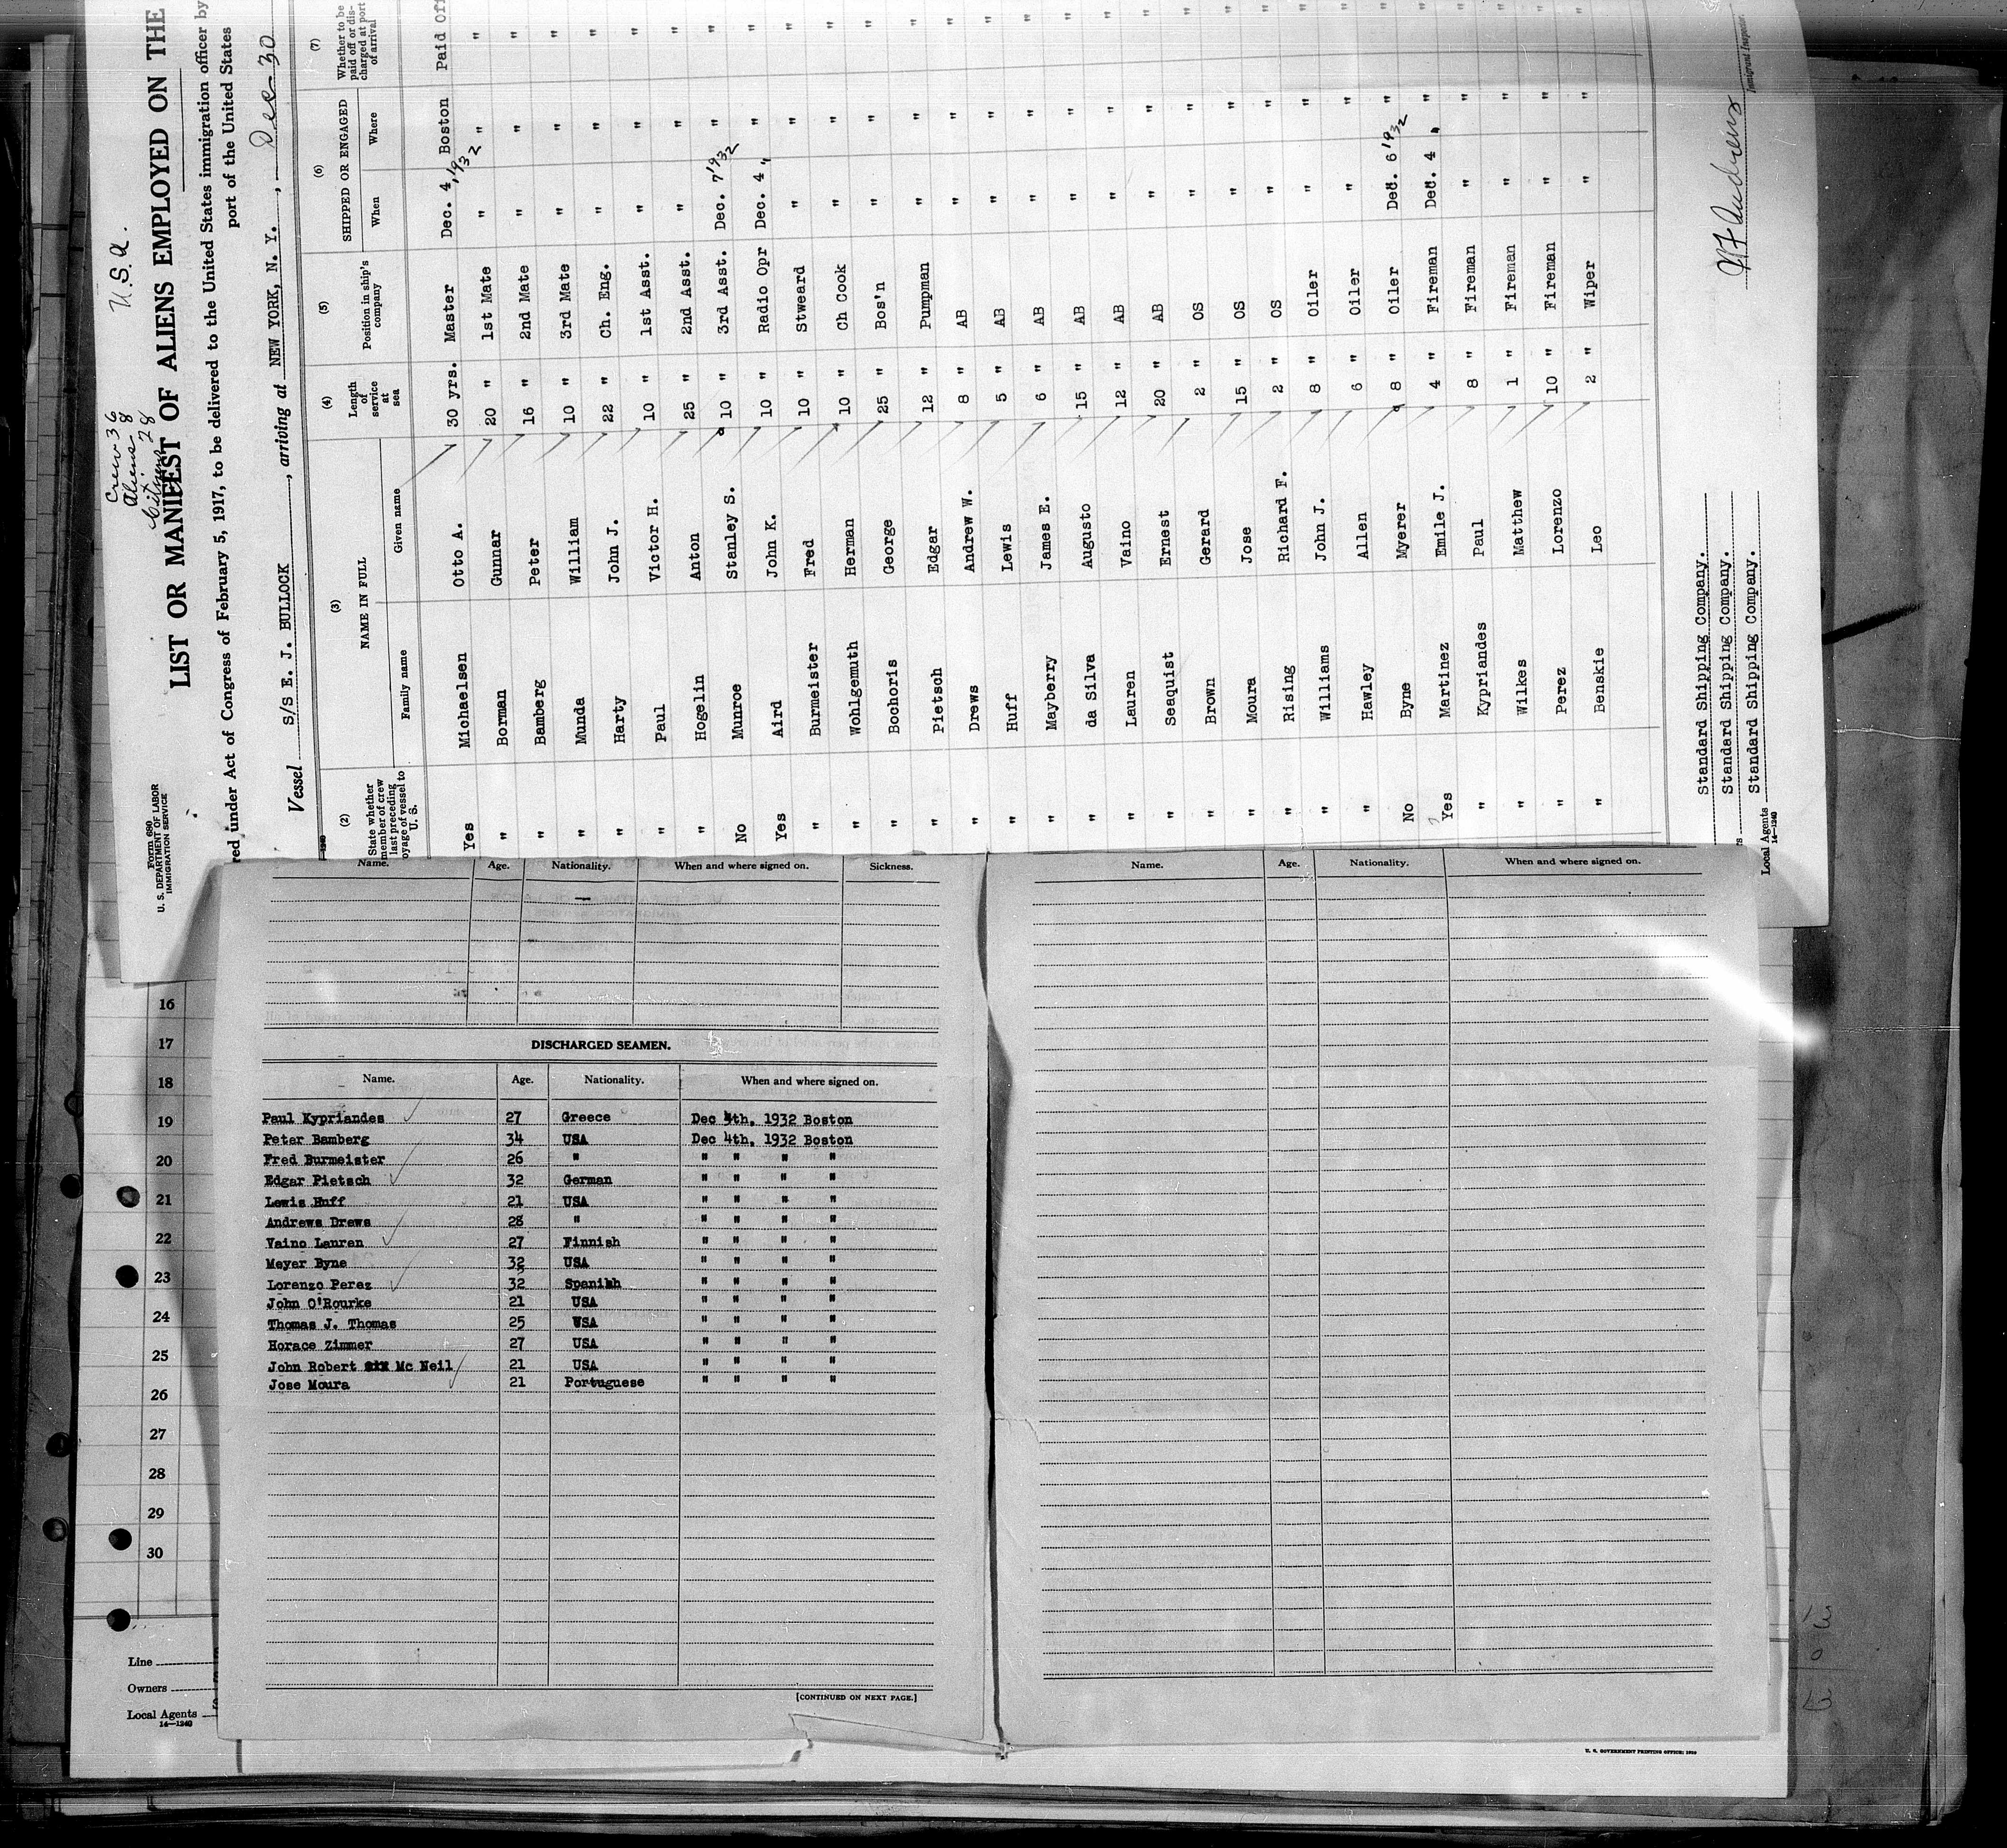 U.S.A.
Crew 36
Aliens 8
Citizens 28
Form 680
U. S. DEPARTMENT OF LABOR
IMMIGRATION SERVICE
LIST OR MANIFEST OF ALIENS EMPLOYED ON THE
red under Act of Congress of February 5, 1917, to be delivered to the United States immigration officer by
port of the United States
Vessel S/S E. J. BULLOCK, arriving at NEW YORK, N. Y., Dec-30
(2) (3) (4) (5) (6) (7)
State whether member of crew last preceding voyage of vessel to U. S. NAME IN FULL Family name Given name Length of service at sea Position in ship's company SHIPPED OR ENGAGED When Where Whether to be paid off or discharged at port of arrival
Yes Michaelsen Otto A. 30 yrs. Master Dec. 4, 1932 Boston Paid Off
" Borman Gunnar 20 " 1st Mate " " "
" Bamberg Peter 16 " 2nd Mate " " "
" Munda William 10 " 3rd Mate " " "
" Harty John J. 22 " Ch. Eng. " " "
" Paul Victor H. 10 " 1st Asst. " " "
" Hogelin Anton 25 " 2nd Asst. " " "
No Munroe Stanley S. 10 " 3rd Asst. Dec. 7 1932 " "
Yes Aird John K. 10 " Radio Opr Dec. 4 " " "
" Burmeister Fred 10 " Stweard " " "
" Wohlgemuth Herman 10 " Ch Cook " " "
" Bochoris George 25 " Bos'n " " "
" Pietsch Edgar 12 " Pumpman " " "
" Drews Andrew W. 8 " AB " " "
" Huff Lewis 5 " AB " " "
" Mayberry James E. 6 " AB " " "
" da Silva Augusto 15 " AB " " "
" Lauren Vaino 12 " AB " " "
" Seaquist Ernest 20 " AB " " "
" Brown Gerard 2 " OS " " "
" Moura Jose 15 " OS " " "
" Rising Richard F. 2 " OS " " "
" Williams John J. 8 " Oiler " " "
" Hawley Allen 6 " Oiler " " "
No Byne Myerer 8 " Oiler Dec. 6 1932 " "
Yes Martinez Emile J. 4 " Fireman Dec. 4 " " "
" Kypriandes Paul 8 " Fireman " " "
" Wilkes Matthew 1 " Fireman " " "
" Perez Lorenzo 10 " Fireman " " "
" Benskie Leo 2 " Wiper " " "
Standard Shipping Company.
Standard Shipping Company.
Local Agents Standard Shipping Company.
14—1240
Immigrant Inspector.
Name. Age. Nationality. When and where signed on. Sickness.
DISCHARGED SEAMEN.
Name. Age. Nationality. When and where signed on.
Paul Kypriandes 27 Greece Dec 4th, 1932 Boston
Peter Bamberg 34 USA Dec 4th, 1932 Boston
Fred Burmeister 26 " " " " "
Edgar Pietsch 32 German " " " "
Lewis Huff 21 USA " " " "
Andrews Drews 28 " " " " "
Vaino Lauren 27 Finnish " " " "
Meyer Byne 32 USA " " " "
Lorenzo Perez 32 Spanish " " " "
John O'Rourke 21 USA " " " "
Thomas J. Thomas 25 USA " " " "
Horace Zimmer 27 USA " " " "
John Robert Mc Neil 21 USA " " " "
Jose Moura 21 Portuguese " " " "
[CONTINUED ON NEXT PAGE.]
Name. Age. Nationality. When and where signed on.
U. S. GOVERNMENT PRINTING OFFICE: 1930
16
17
18
19
20
21
22
23
24
25
26
27
28
29
30
Line
Owners
Local Agents
14—1240